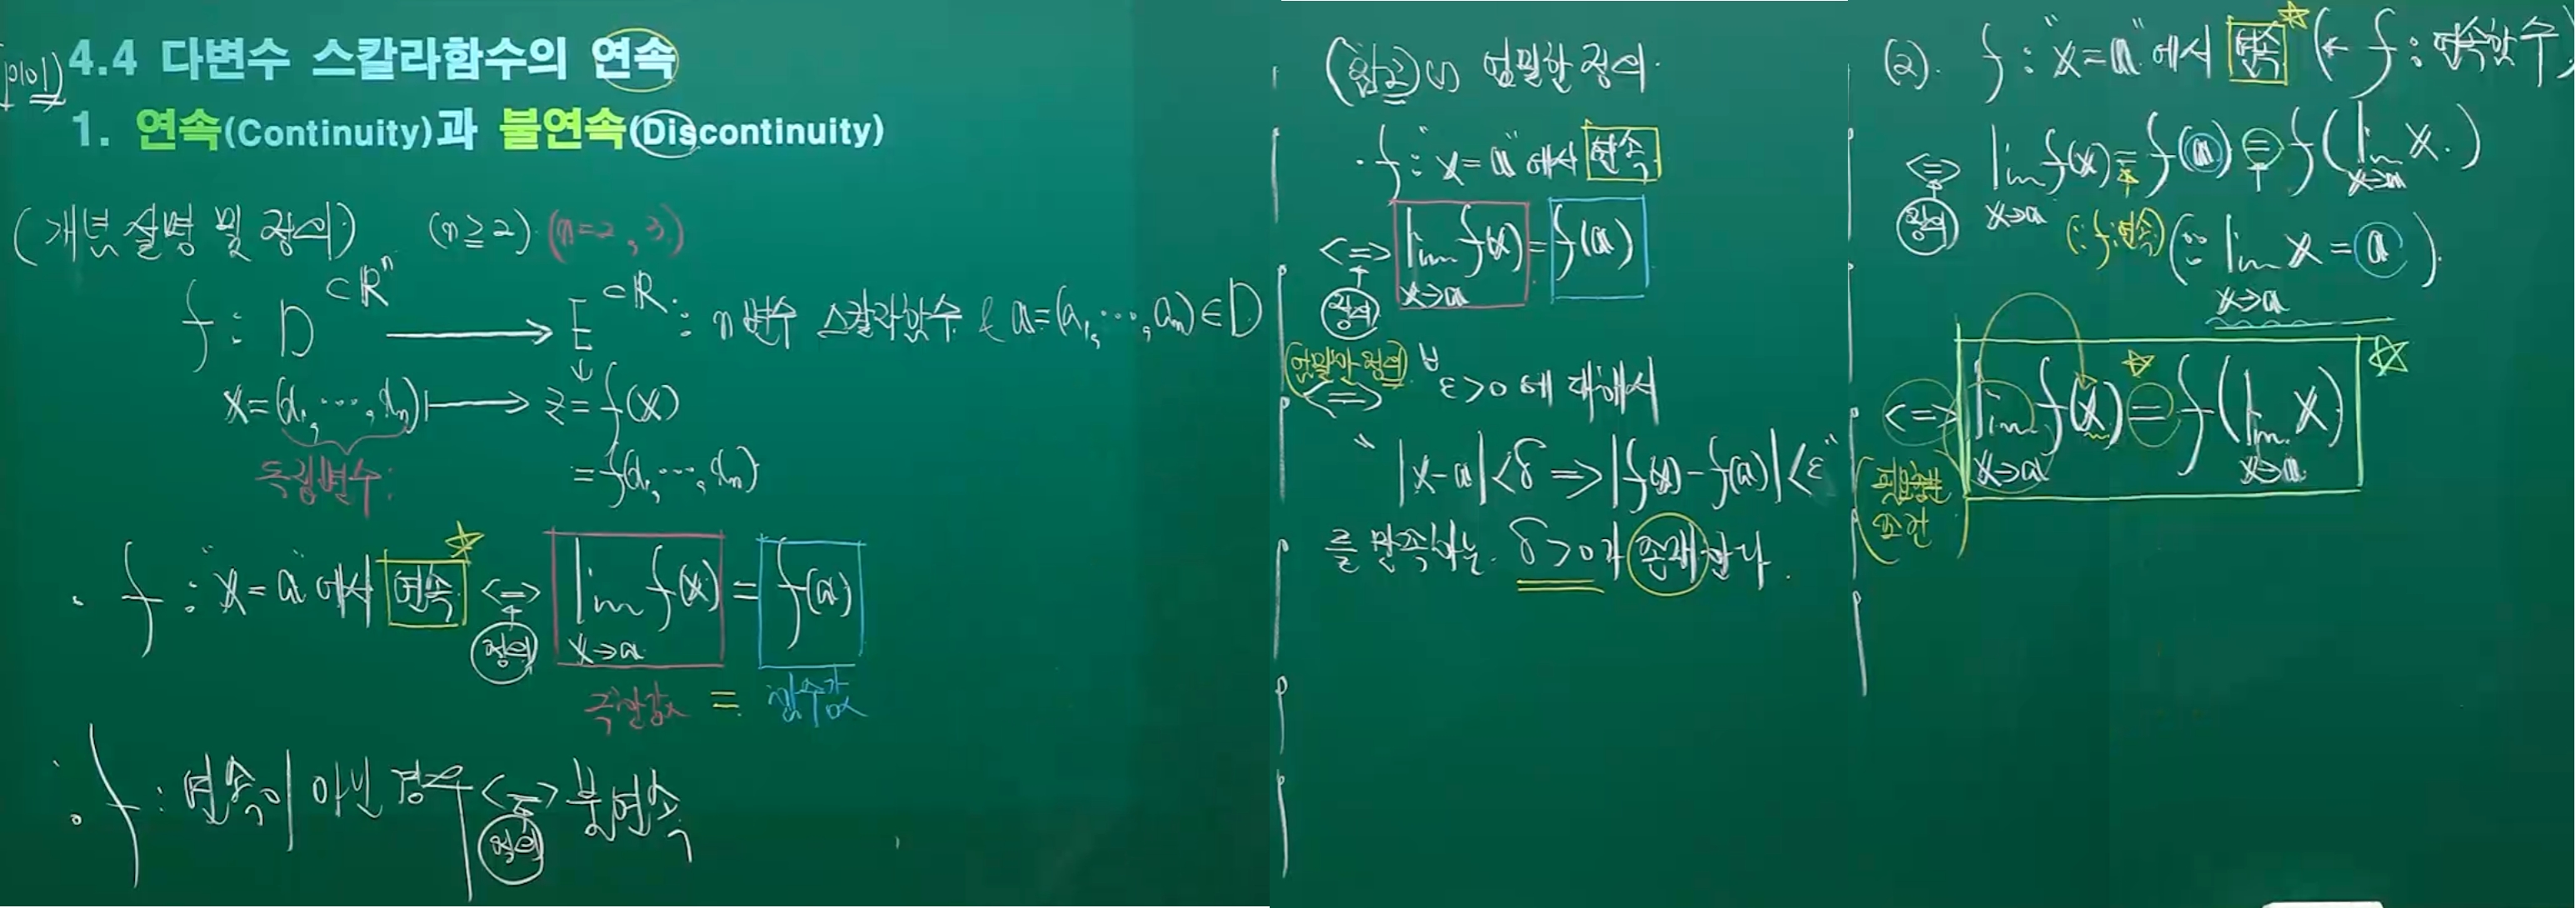 p101) 4.4 다변수 스칼라함수의 연속
1. 연속(Continuity)과 불연속(Discontinuity)
(개념 설명 및 정의) (n≥2) (n=2, 3)
f : D ⊂ℝⁿ → E ⊂ℝ : n변수 스칼라함수 & a=(a₁, ⋯, aₙ) ∈ D
x=(x₁, ⋯, xₙ) ↦ z = f(x)
독립변수
= f(x₁, ⋯, xₙ)
· f : "x=a"에서 연속 ☆ <=> lim f(x) = f(a)
정의 x→a
극한값 = 함수값
f : 연속이 아닌 경우 <=> 불연속
정의
(참고) (1) 엄밀한 정의
· f : "x=a"에서 연속
<=> lim f(x) = f(a)
정의 x→a
(엄밀한 정의)
<=> ∀ε>0에 대해서
"|x-a|<δ => |f(x)-f(a)|<ε"
를 만족하는 δ>0가 존재한다.
(2). f : "x=a"에서 연속 ☆ (← f : 연속함수)
<=> lim f(x) = f(a) = f(lim x)
정의 x→a x→a
(∵ f:연속) (∵ lim x = a).
x→a
<=> lim f(x) = f(lim x) ☆
x→a x→a
(필요충분
조건)